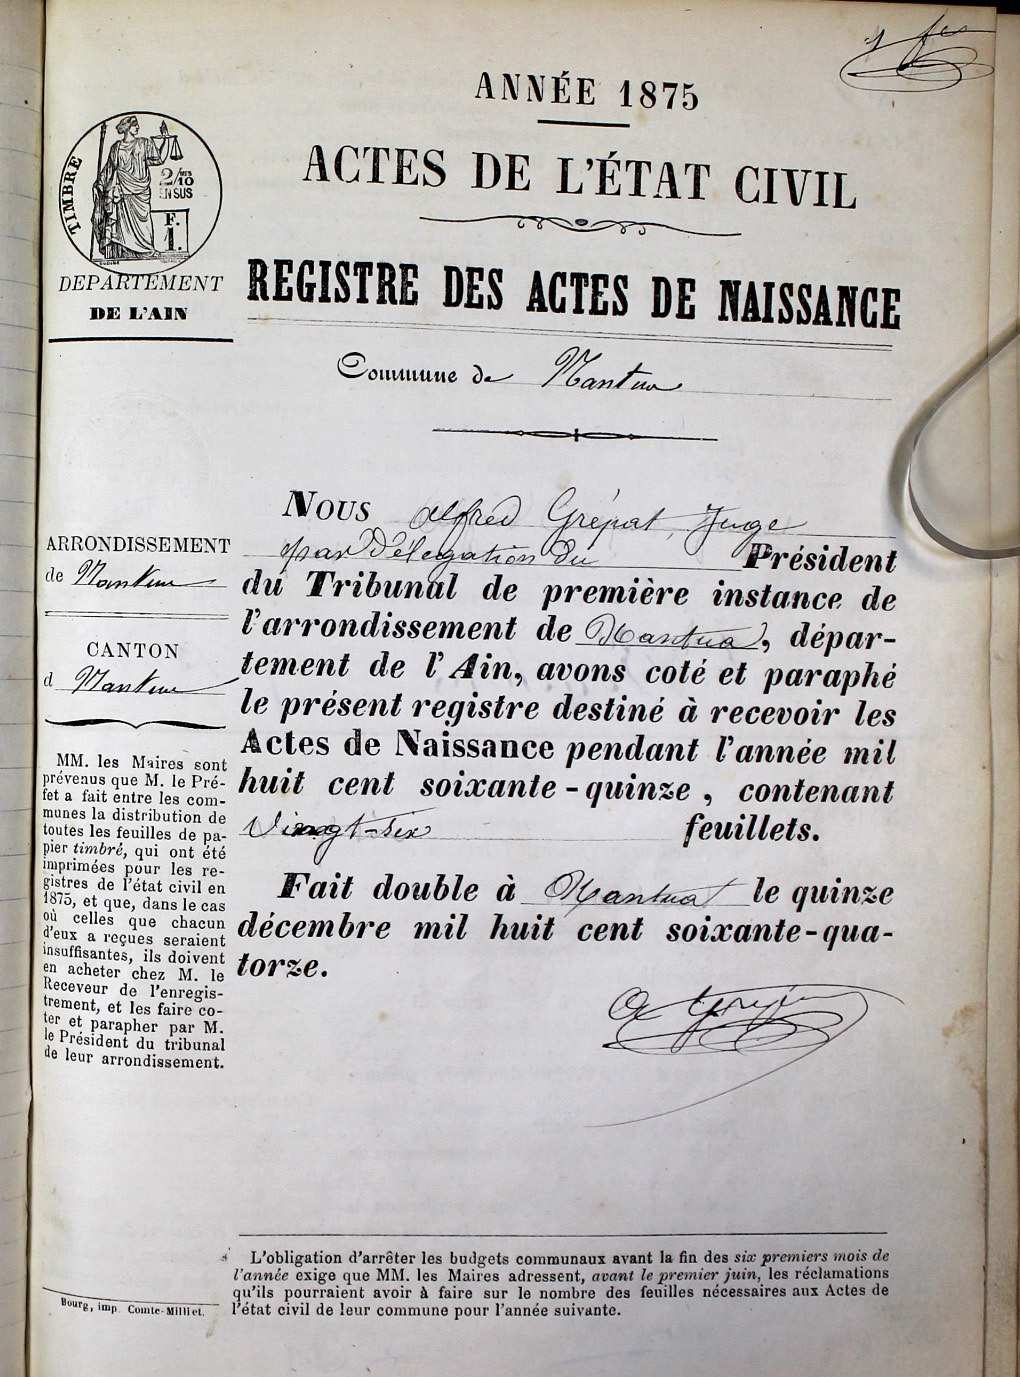 ANNÉE 1875
ACTES DE L'ÉTAT CIVIL
TIMBRE
2/10
EN SUS
F.
1.
DÉPARTEMENT
DE L'AIN
REGISTRE DES ACTES DE NAISSANCE
Commune de Nantua
ARRONDISSEMENT
de Nantua
CANTON
d Nantua
MM. les Maires sont
prévenus que M. le Pré-
fet a fait entre les com-
munes la distribution de
toutes les feuilles de pa-
pier timbré, qui ont été
imprimées pour les re-
gistres de l'état civil en
1875, et que, dans le cas
où celles que chacun
d'eux a reçues seraient
insuffisantes, ils doivent
en acheter chez M. le
Receveur de l'enregis-
trement, et les faire co-
ter et parapher par M.
le Président du tribunal
de leur arrondissement.
NOUS Alfred Grépat, Juge
par Délégation du Président
du Tribunal de première instance de
l'arrondissement de Nantua, dépar-
tement de l'Ain, avons coté et paraphé
le présent registre destiné à recevoir les
Actes de Naissance pendant l'année mil
huit cent soixante-quinze, contenant
Vingt-six feuillets.
Fait double à Nantua le quinze
décembre mil huit cent soixante-qua-
torze.
L'obligation d'arrêter les budgets communaux avant la fin des six premiers mois de
l'année exige que MM. les Maires adressent, avant le premier juin, les réclamations
qu'ils pourraient avoir à faire sur le nombre des feuilles nécessaires aux Actes de
l'état civil de leur commune pour l'année suivante.
Bourg, imp. Comte-Milliet.